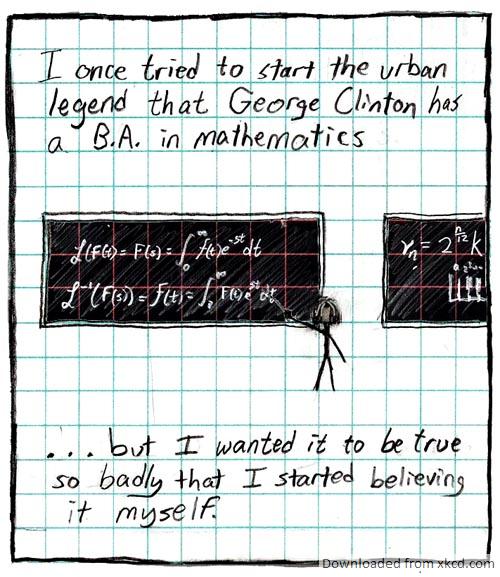 I once tried to start the urban
legend that George Clinton has
a B.A. in mathematics
ℒ(F(t) = F(s) = ∫₀^∞ f(t)e^-st dt
ℒ⁻¹(F(s)) = f(t) = ∫₂^∞ F(t)e^st dt
γₙ = 2^(n/12) k
... but I wanted it to be true
so badly that I started believing
it myself.
Downloaded from xkcd.com